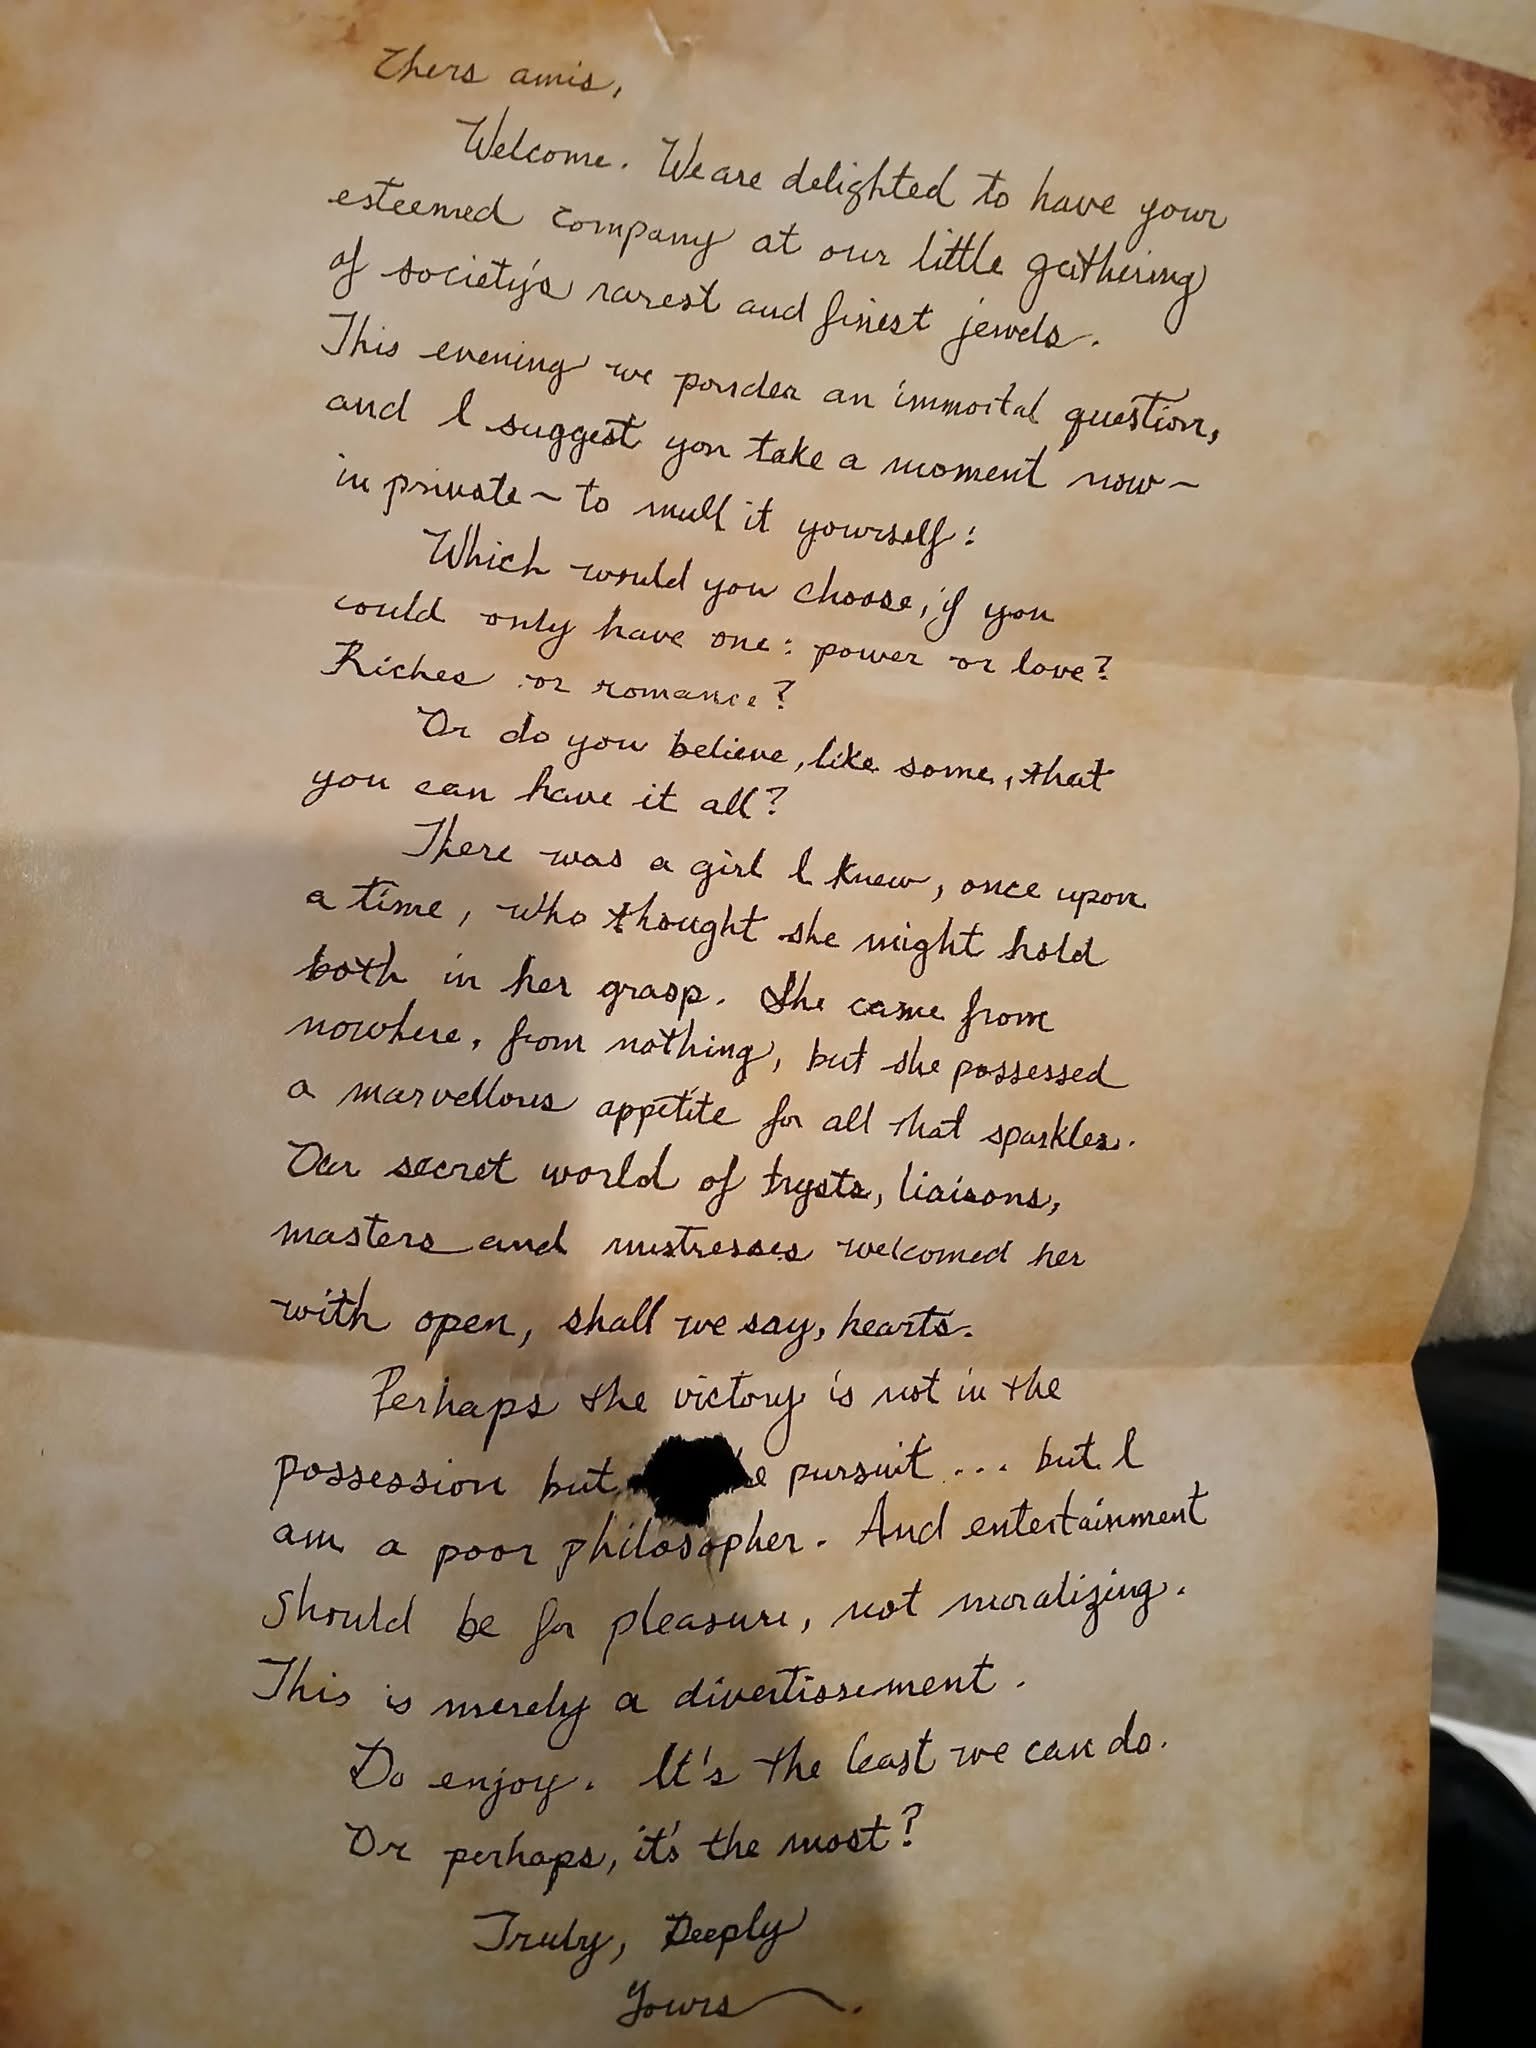 Chers amis,
Welcome. We are delighted to have your
esteemed company at our little gathering
of society's rarest and finest jewels.
This evening we ponder an immortal question,
and I suggest you take a moment now~
in private~ to mull it yourself:
Which would you choose, if you
could only have one: power or love?
Riches or romance?
Or do you believe, like some, that
you can have it all?
There was a girl I knew, once upon
a time, who thought she might hold
both in her grasp. She came from
nowhere, from nothing, but she possessed
a marvellous appetite for all that sparkles.
Our secret world of trysts, liaisons,
masters and mistresses welcomed her
with open, shall we say, hearts.
Perhaps the victory is not in the
possession but pursuit ... but I
am a poor philosopher. And entertainment
should be for pleasure, not moralizing.
This is merely a divertissement.
Do enjoy. It's the least we can do.
Or perhaps, it's the most?
Truly, Deeply
Yours